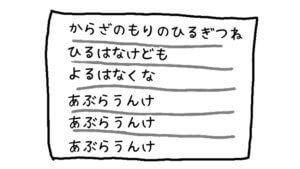 からざのもりのひるぎつね
ひるはなけども
よるはなくな
あぶらうんけ
あぶらうんけ
あぶらうんけ